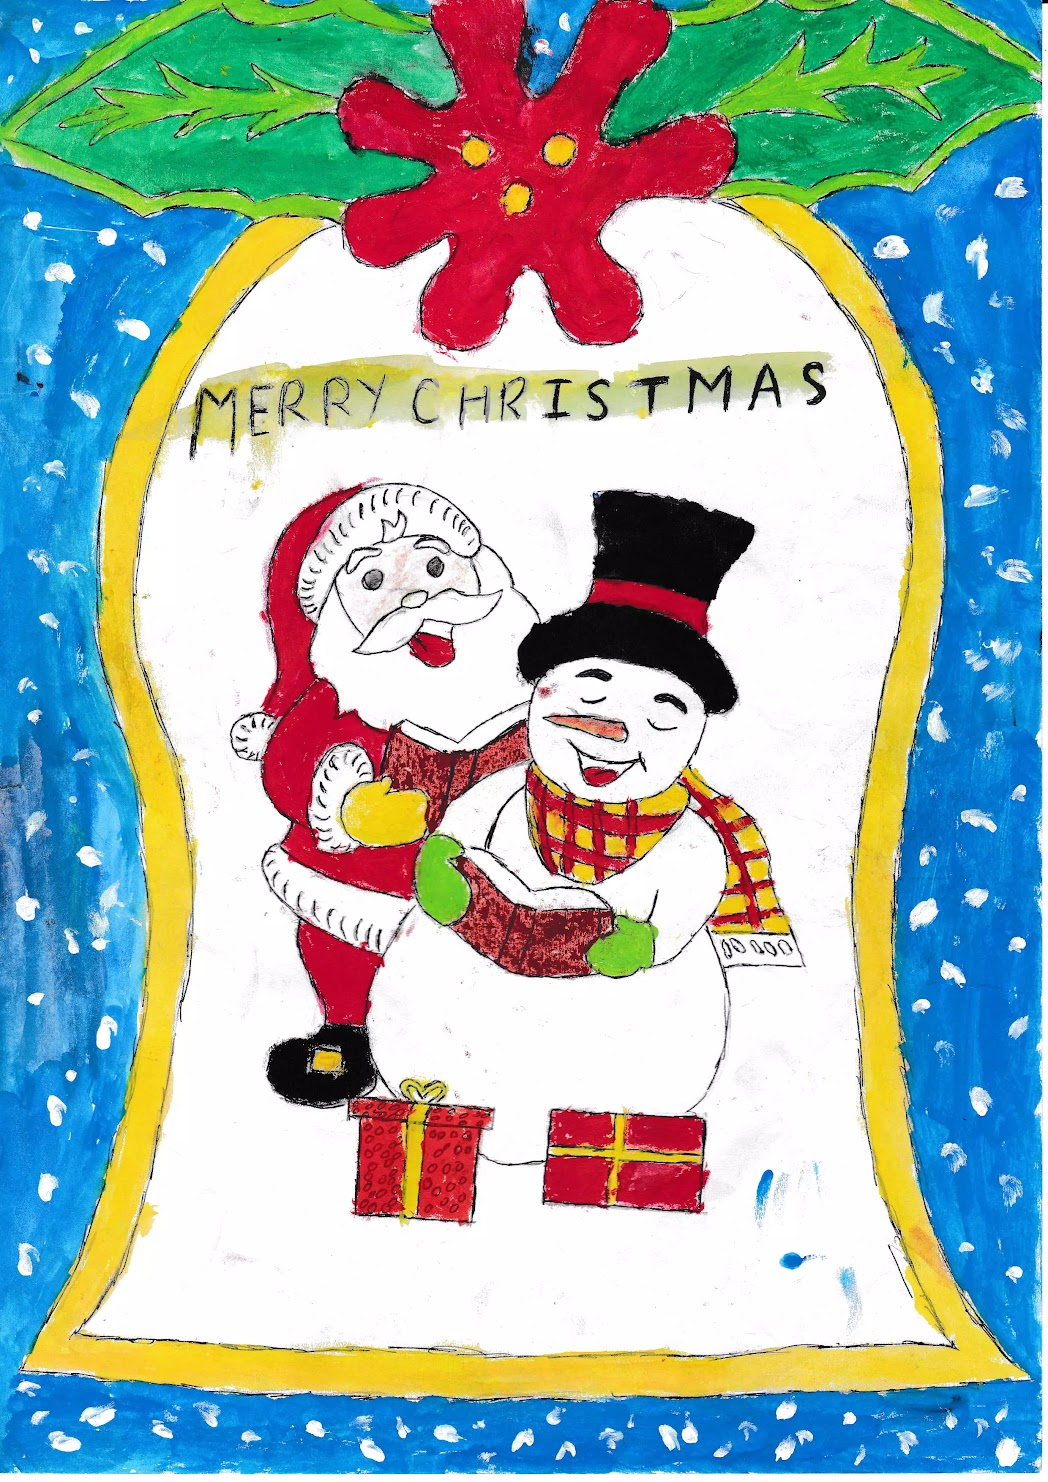 MERRY CHRISTMAS